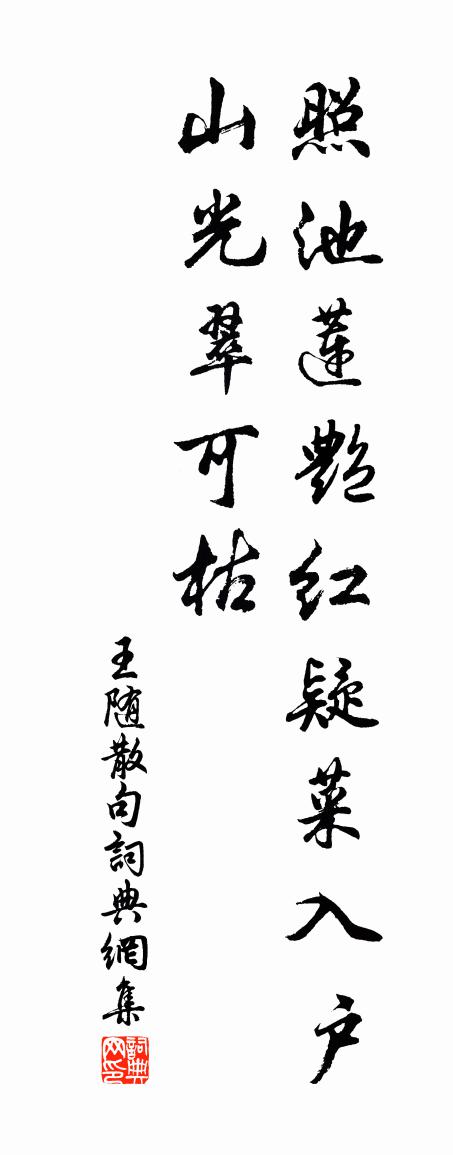 照池蓮艷红疑菜入户
山光翠可枯
王随散句詞典網集
詞典网印